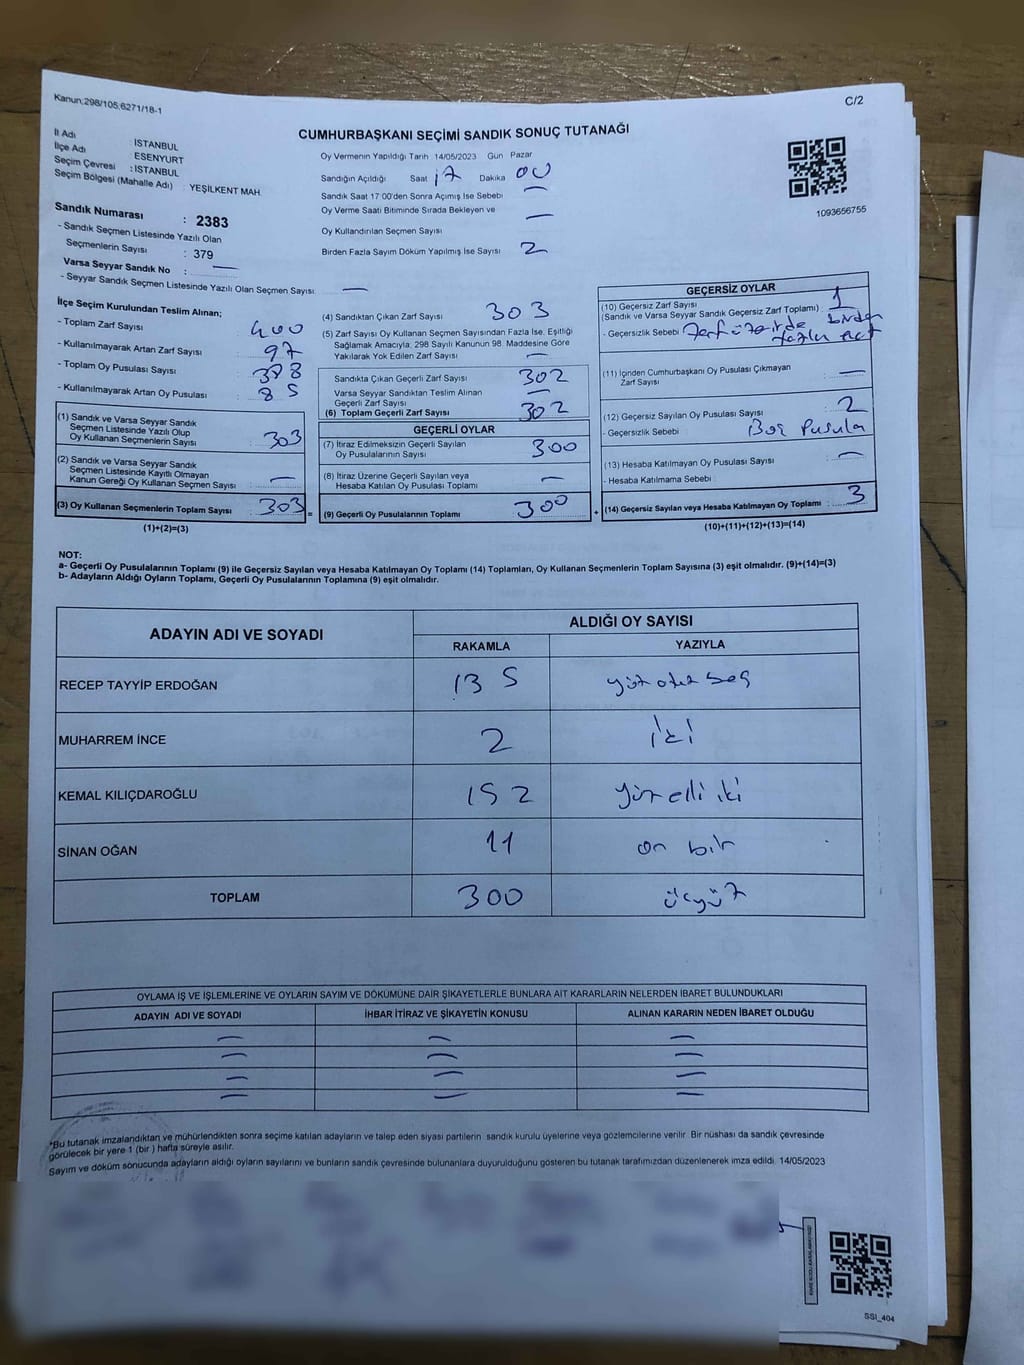 Kanun;298/105;6271/18-1
C/2
CUMHURBAŞKANI SEÇİMİ SANDIK SONUÇ TUTANAĞI
İl Adı : İSTANBUL
İlçe Adı ESENYURT
Seçim Çevresi : İSTANBUL
Seçim Bölgesi (Mahalle Adı) : YEŞİLKENT MAH.
Sandık Numarası : 2383
- Sandık Seçmen Listesinde Yazılı Olan
Seçmenlerin Sayısı : 379
Varsa Seyyar Sandık No : —
- Seyyar Sandık Seçmen Listesinde Yazılı Olan Seçmen Sayısı: —
Oy Vermenin Yapıldığı Tarih 14/05/2023 Gün Pazar
Sandığın Açıldığı Saat 17 Dakika 00
Sandık Saat 17:00'den Sonra Açımış İse Sebebi —
Oy Verme Saati Bitiminde Sırada Bekleyen ve
Oy Kullandırılan Seçmen Sayısı —
Birden Fazla Sayım Döküm Yapılmış İse Sayısı 2
1093656755
İlçe Seçim Kurulundan Teslim Alınan;
- Toplam Zarf Sayısı : 400
- Kullanılmayarak Artan Zarf Sayısı : 97
- Toplam Oy Pusulası Sayısı :
- Kullanılmayarak Artan Oy Pusulası : 85
(1) Sandık ve Varsa Seyyar Sandık
Seçmen Listesinde Yazılı Olup
Oy Kullanan Seçmenlerin Sayısı : 303
(2) Sandık ve Varsa Seyyar Sandık
Seçmen Listesinde Kayıtlı Olmayan
Kanun Gereği Oy Kullanan Seçmen Sayısı : —
(3) Oy Kullanan Seçmenlerin Toplam Sayısı : 303 =
(1)+(2)=(3)
(4) Sandıktan Çıkan Zarf Sayısı 303
(5) Zarf Sayısı Oy Kullanan Seçmen Sayısından Fazla İse, Eşitliği
Sağlamak Amacıyla; 298 Sayılı Kanunun 98. Maddesine Göre
Yakılarak Yok Edilen Zarf Sayısı —
Sandıkta Çıkan Geçerli Zarf Sayısı 302
Varsa Seyyar Sandıktan Teslim Alınan
Geçerli Zarf Sayısı —
(6) Toplam Geçerli Zarf Sayısı 302
GEÇERLİ OYLAR
(7) İtiraz Edilmeksizin Geçerli Sayılan
Oy Pusulalarının Sayısı : 300
(8) İtiraz Üzerine Geçerli Sayılan veya
Hesaba Katılan Oy Pusulası Toplamı : —
(9) Geçerli Oy Pusulalarının Toplamı : 300 +
GEÇERSİZ OYLAR
(10) Geçersiz Zarf Sayısı
(Sandık ve Varsa Seyyar Sandık Geçersiz Zarf Toplamı) : 1
- Geçersizlik Sebebi : Zarf üzerinde birden
(11) İçinden Cumhurbaşkanı Oy Pusulası Çıkmayan
Zarf Sayısı —
(12) Geçersiz Sayılan Oy Pusulası Sayısı : 2
- Geçersizlik Sebebi : Boş Pusula
(13) Hesaba Katılmayan Oy Pusulası Sayısı : —
- Hesaba Katılmama Sebebi :
(14) Geçersiz Sayılan veya Hesaba Katılmayan Oy Toplamı : 3
(10)+(11)+(12)+(13)=(14)
NOT:
a- Geçerli Oy Pusulalarının Toplamı (9) ile Geçersiz Sayılan veya Hesaba Katılmayan Oy Toplamı (14) Toplamları, Oy Kullanan Seçmenlerin Toplam Sayısına (3) eşit olmalıdır. (9)+(14)=(3)
b- Adayların Aldığı Oyların Toplamı, Geçerli Oy Pusulalarının Toplamına (9) eşit olmalıdır.
ADAYIN ADI VE SOYADI ALDIĞI OY SAYISI
RAKAMLA YAZIYLA
RECEP TAYYİP ERDOĞAN 135 yüz otuz beş
MUHARREM İNCE 2 iki
KEMAL KILIÇDAROĞLU 152 yüz elli iki
SİNAN OĞAN 11 on bir
TOPLAM 300 üçyüz
OYLAMA İŞ VE İŞLEMLERİNE VE OYLARIN SAYIM VE DÖKÜMÜNE DAİR ŞİKAYETLERLE BUNLARA AİT KARARLARIN NELERDEN İBARET BULUNDUKLARI
ADAYIN ADI VE SOYADI İHBAR İTİRAZ VE ŞİKAYETİN KONUSU ALINAN KARARIN NEDEN İBARET OLDUĞU
— — —
— — —
— — —
— — —
*Bu tutanak imzalandıktan ve mühürlendikten sonra seçime katılan adayların ve talep eden siyasi partilerin sandık kurulu üyelerine veya gözlemcilerine verilir. Bir nüshası da sandık çevresinde
görülecek bir yere 1 (bir ) hafta süreyle asılır.
Sayım ve döküm sonucunda adayların aldığı oyların sayılarını ve bunların sandık çevresinde bulunanlara duyurulduğunu gösteren bu tutanak tarafımızdan düzenlenerek imza edildi. 14/05/2023
SSI_404